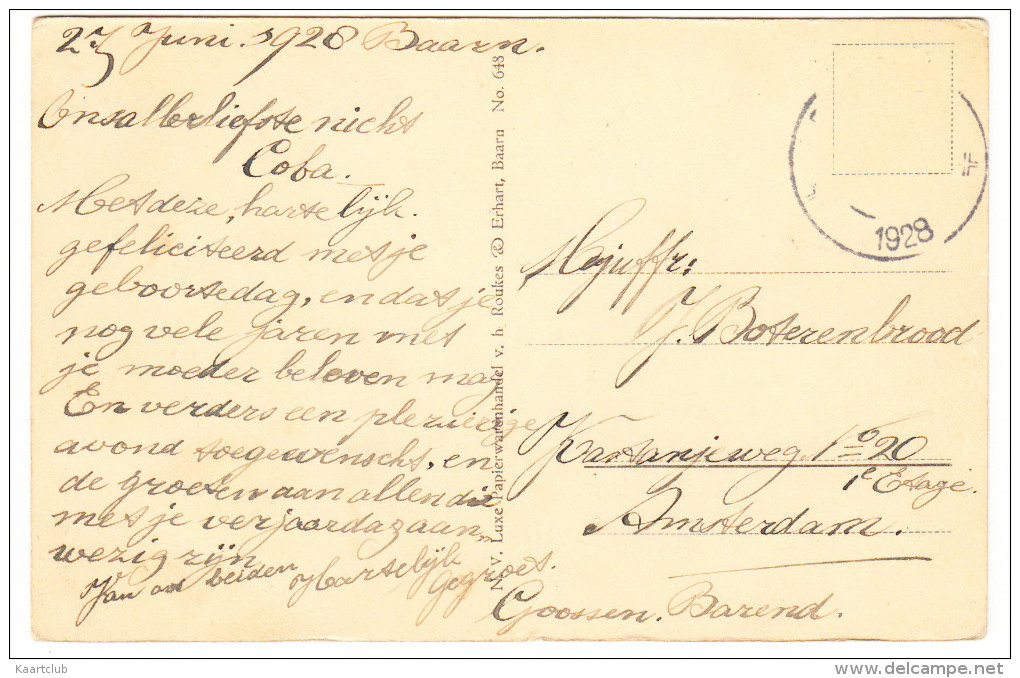 27 Juni. 1928 Baarn.
Onsallerliefste nicht
Coba.
Metdeze, hartelijk.
gefeliciteerd metje
geboortedag, en dat je
nog vele jaren met
je moeder beloven mag
En verders een plezierige
avond toegewenscht, en
de groeten aan allen die
met je verjaardag aan
wezig zijn
Van ons beiden Hartelijk gegroet.
Goossen. Barend.
N. v. Luxe Papierwarenhandel v. h. Roukes & Erhart, Baarn No. 648
1928
Mejuffr:
J. Boterenbrood
Kastanjeweg No 20
1e Etage.
Amsterdam.
Kaartclub
delcampe.net